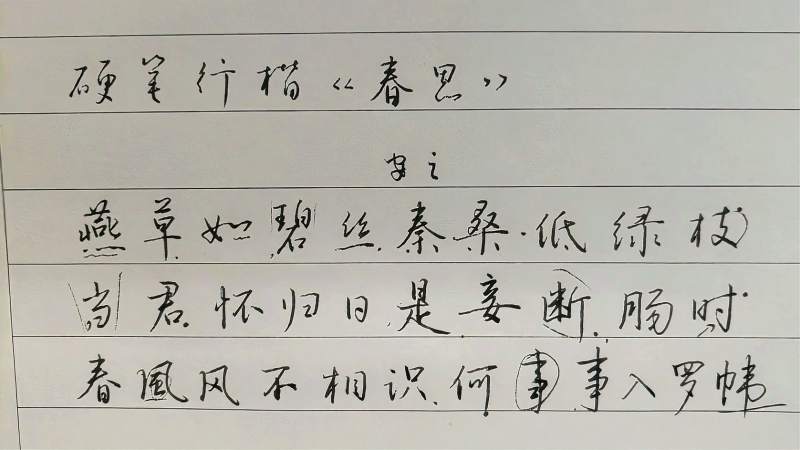 硬笔行楷《春思》
安之
燕草如碧丝秦桑低绿枝
当君怀归日是妾断肠时
春風风不相识何事事入罗帏